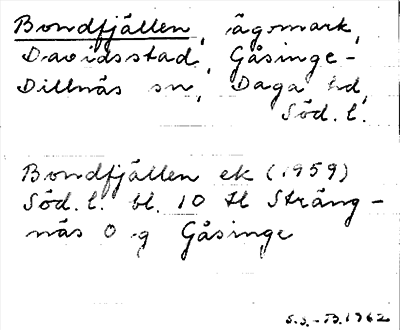 Bondfjällen, ägomark,
Davidsstad, Gåsinge-
Dillnäs sn, Daga hd,
Söd. l.
Bondfjällen ek (1959)
Söd. l. bl. 10 tl Sträng-
näs O g Gåsinge
S.S. - B. 1962